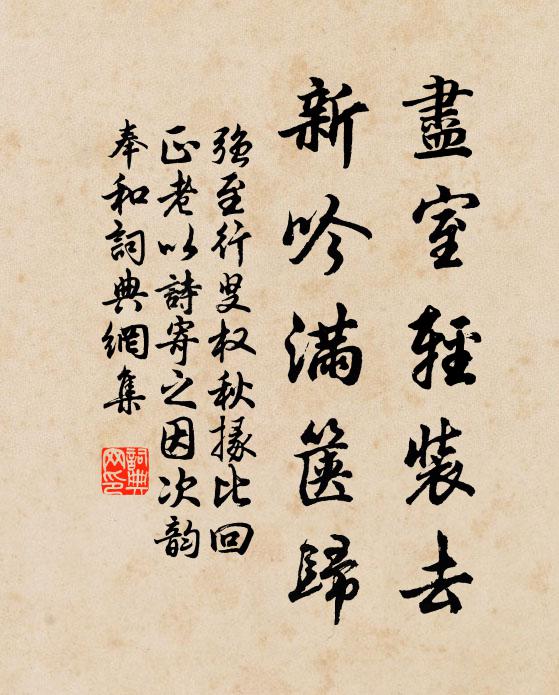 盡室輕裝去
新吟滿篋歸
強至行叟权秋掾比回
正老以詩寄之因次韵
奉和詞典網集
詞典網印